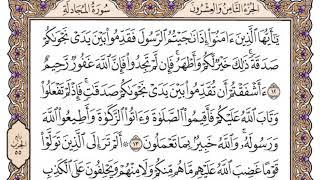 سُورَةُ المُجَادلة الجُزْءُ الثَّامِنُ وَالعِشْرُونَ
يَٰٓأَيُّهَا ٱلَّذِينَ ءَامَنُوٓاْ إِذَا نَٰجَيۡتُمُ ٱلرَّسُولَ فَقَدِّمُواْ بَيۡنَ يَدَيۡ نَجۡوَىٰكُمۡ
صَدَقَةٗۚ ذَٰلِكَ خَيۡرٞ لَّكُمۡ وَأَطۡهَرُۚ فَإِن لَّمۡ تَجِدُواْ فَإِنَّ ٱللَّهَ غَفُورٞ رَّحِيمٌ
١٢ ءَأَشۡفَقۡتُمۡ أَن تُقَدِّمُواْ بَيۡنَ يَدَيۡ نَجۡوَىٰكُمۡ صَدَقَٰتٖۚ فَإِذۡ لَمۡ تَفۡعَلُواْ
وَتَابَ ٱللَّهُ عَلَيۡكُمۡ فَأَقِيمُواْ ٱلصَّلَوٰةَ وَءَاتُواْ ٱلزَّكَوٰةَ وَأَطِيعُواْ ٱللَّهَ
وَرَسُولَهُۥۚ وَٱللَّهُ خَبِيرُۢ بِمَا تَعۡمَلُونَ ١٣ ۞ أَلَمۡ تَرَ إِلَى ٱلَّذِينَ تَوَلَّوۡاْ
قَوۡمًا غَضِبَ ٱللَّهُ عَلَيۡهِم مَّا هُم مِّنكُمۡ وَلَا مِنۡهُمۡ وَيَحۡلِفُونَ عَلَى ٱلۡكَذِبِ
الحزب
٥٥